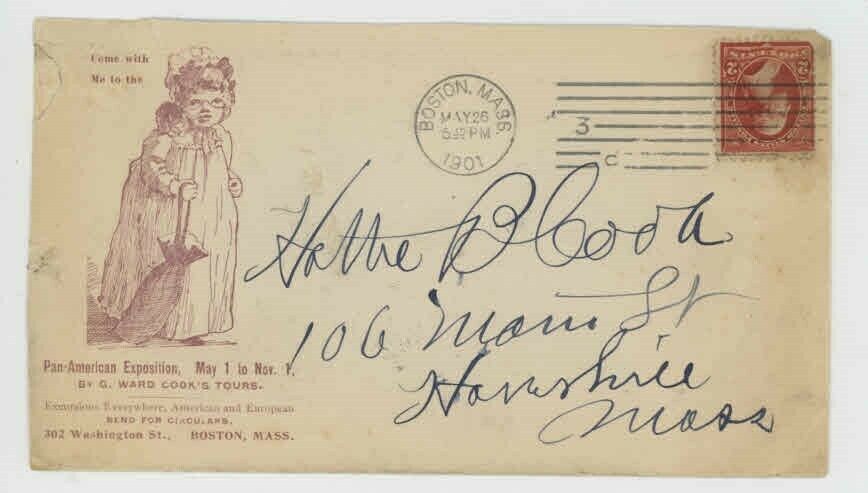 Come with
Me to the
BOSTON, MASS.
MAY 26
1901
3
d
Hattie B Cook
106 Main St
Haverhill
Mass
Pan-American Exposition, May 1 to Nov. 1.
BY G. WARD COOK'S TOURS.
Excursions Everywhere, American and European
SEND FOR CIRCULARS.
302 Washington St., BOSTON, MASS.